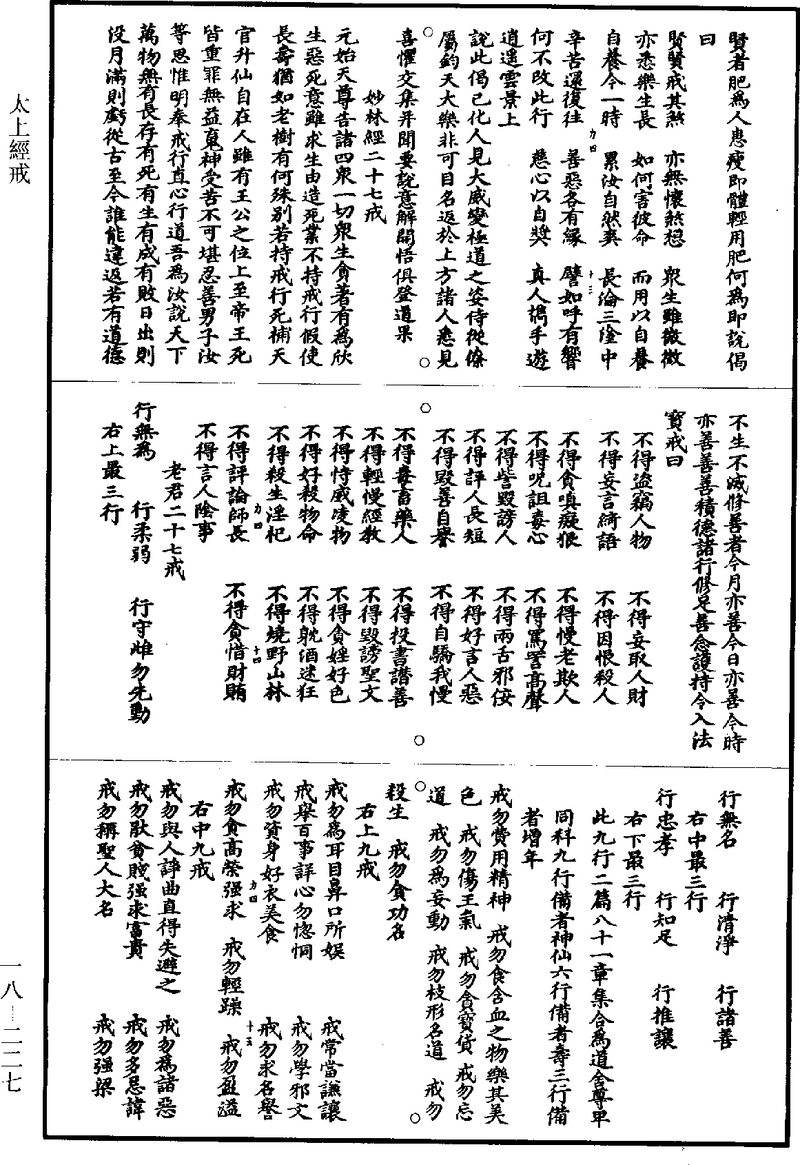 太上經戒
賢者肥爲人患瘦即體輕用肥何爲即說偈
曰
賢賢戒其煞　亦無懷煞想　衆生雖微微
亦悉樂生長　如何害彼命　而用以自養
自養今一時　累汝自然喪　長淪三塗中
力四
十三
辛苦還復往　善惡各有緣　譬如呼有響
何不改此行　慈心以自奬　真人攜手遊
逍遥雲景上
說此偈已化人見大威變極道之姿侍從僚
屬鈞天大樂非可目名返於上方諸人悉見
喜懼交集并聞要說意解開悟俱登道果
妙林經二十七戒
元始天尊告諸四衆一切衆生貪著有爲欣
生惡死意雖求生由造死業不持戒行假使
長壽猶如老樹有何殊别若持戒行死補天
官升仙自在人雖有王公之位上至帝王死
皆重罪無益䰟神受苦不可堪忍善男子汝
等思惟明奉戒行直心行道吾爲汝說天下
萬物無有長存有死有生有成有敗日出則
没月滿則虧從古至今誰能違返若有道德
不生不滅修善者今月亦善今日亦善今時
亦善善善積德諸行修足善念護持令入法
寶戒曰
不得盗竊人物　不得妄取人財
不得妄言綺語　不得因恨殺人
不得貪嗔癡狠　不得慢老欺人
不得呪詛毒心　不得罵詈高聲
不得訾毀謗人　不得兩舌邪佞
不得評人長短　不得好言人惡
不得毀善自譽　不得自驕我慢
不得毒畜藥人　不得投書譖善
不得輕慢經教　不得毀謗聖文
不得恃威凌物　不得貪婬好色
不得好殺物命　不得躭酒迷狂
不得殺生淫祀　不得燒野山林
力四
十四
不得評論師長　不得貪惜財賄
不得言人陰事
老君二十七戒
行無爲　行柔弱　行守雌勿先動
右上最三行
行無名　行清淨　行諸善
右中最三行
行忠孝　行知足　行推讓
右下最三行
此九行二篇八十一章集合爲道舍尊卑
同科九行備者神仙六行備者壽三行備
者增年
戒勿費用精神　戒勿食含血之物樂其美
色　戒勿傷王氣　戒勿貪寶貨　戒勿忘
道　戒勿爲妄動　戒勿枝形名道　戒勿
殺生　戒勿貪功名
右上九戒
戒勿爲耳目鼻口所娱　戒常當謙讓
戒舉百事詳心勿惚恫　戒勿學邪文
戒勿資身好衣美食　戒勿求名譽
力四
十五
戒勿貪高榮强求　戒勿輕躁　戒勿盈溢
右中九戒
戒勿與人諍曲直得失避之　戒勿爲諸惡
戒勿猒貧賤强求富貴　戒勿多忌諱
戒勿稱聖人大名　戒勿强梁
一八―二二七